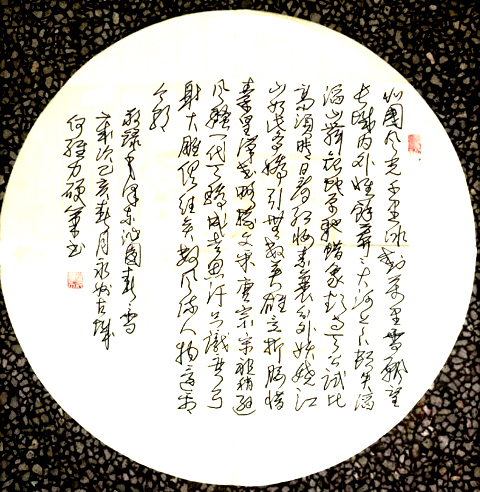 北國风光千里冰封万里雪飘望
长城内外惟餘莽莽大河上下顿失滔
滔山舞银蛇原驰蜡象欲与天公试比
高须晴日看红妆素裹分外妖娆江
山如此多娇引无数英雄竞折腰惜
秦皇汉武略输文采唐宗宋祖稍逊
风骚一代天骄成吉思汗只识弯弓
射大雕俱往矣数风流人物还看
今朝
敬録毛泽东沁園春雪
岁次己亥春月永州古城
何力硬筆书